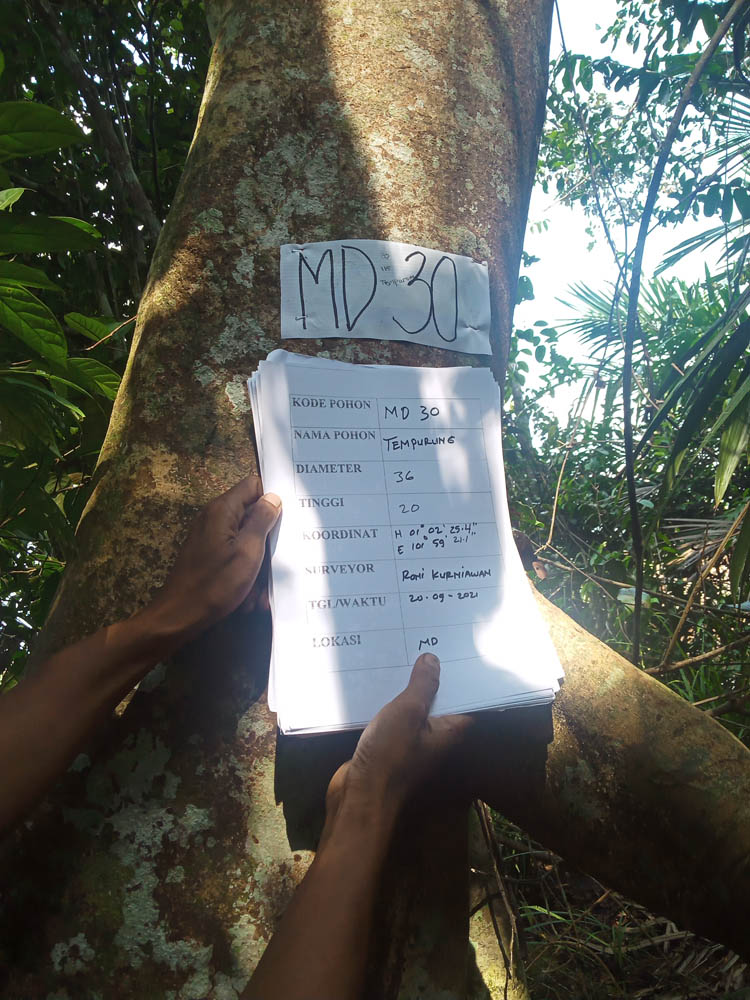 MD 30
KODE POHON MD 30
NAMA POHON TEMPURUNG
DIAMETER 36
TINGGI 20
KOORDINAT N 01° 02' 25.4"
E 101° 59' 21.1"
SURVEYOR ROMI KURNIAWAN
TGL/WAKTU 20-09-2021
LOKASI MD